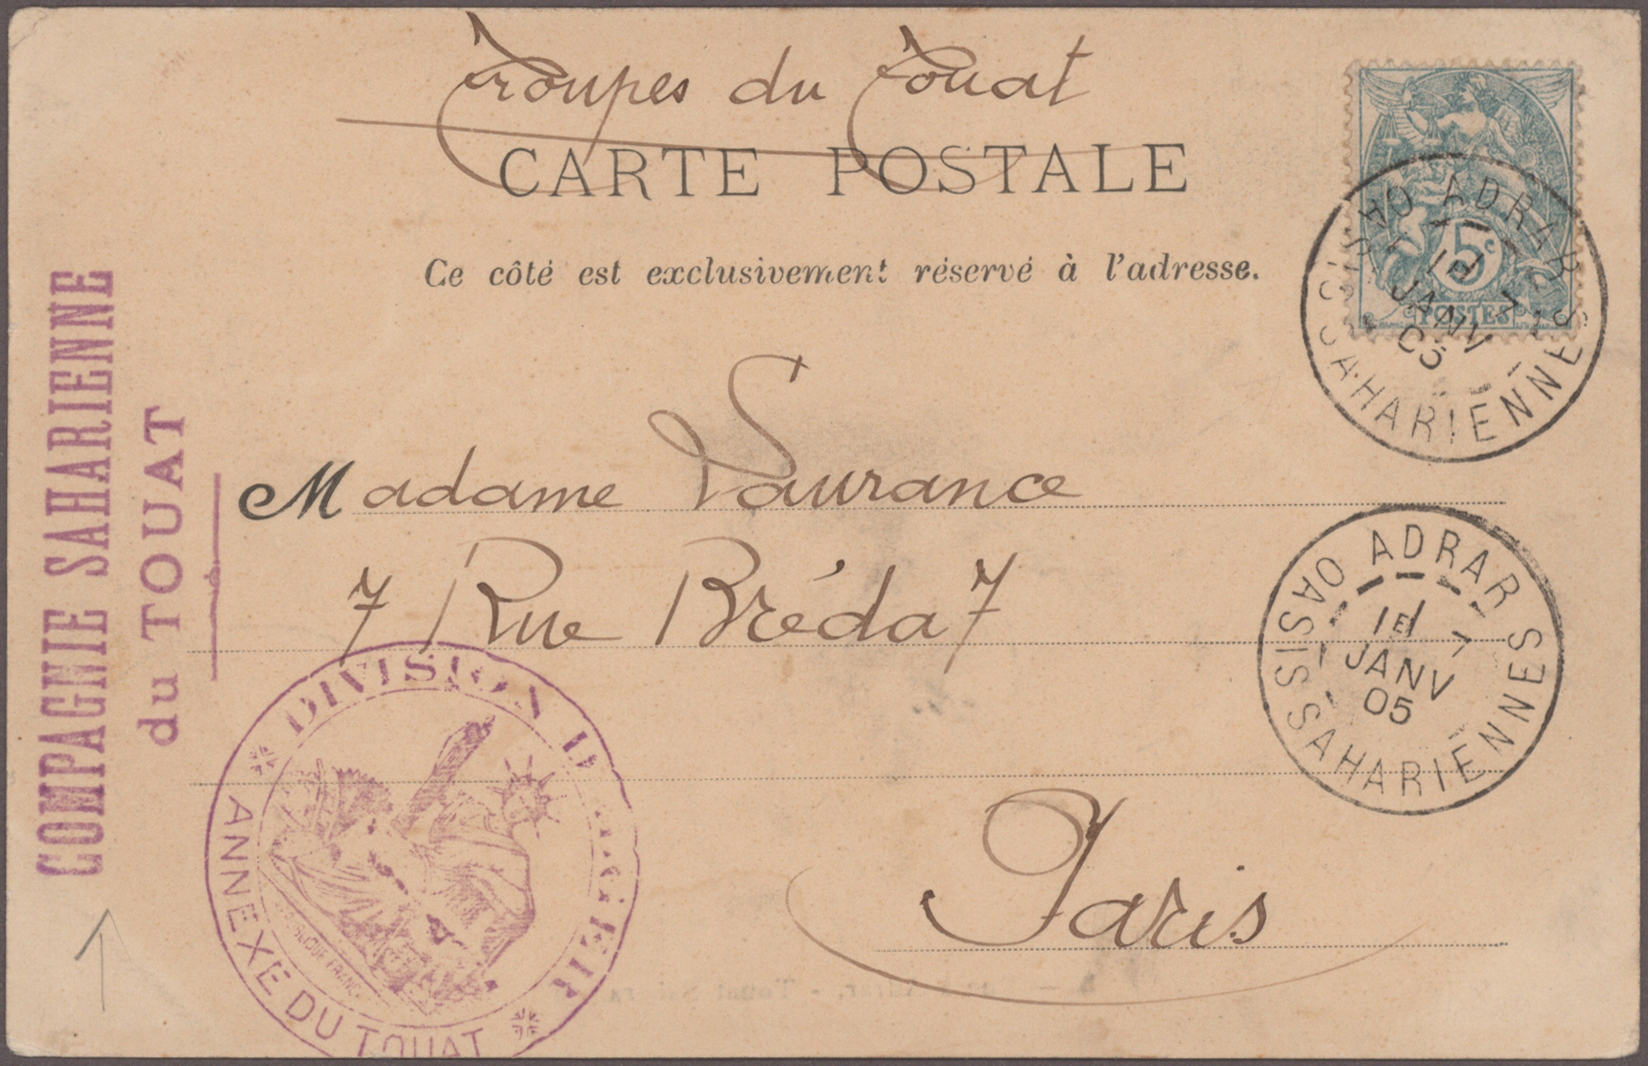 Troupes du Touat
CARTE POSTALE
Ce côté est exclusivement réservé à l'adresse.
5c
POSTES
ADRAR
OASIS SAHARIENNES
1E
7
JANV
05
COMPAGNIE SAHARIENNE
du TOUAT
Madame Laurance
7 Rue Bréda 7
Paris
ADRAR
OASIS SAHARIENNES
1E
7
JANV
05
DIVISION D'ALGER
ANNEXE DU TOUAT